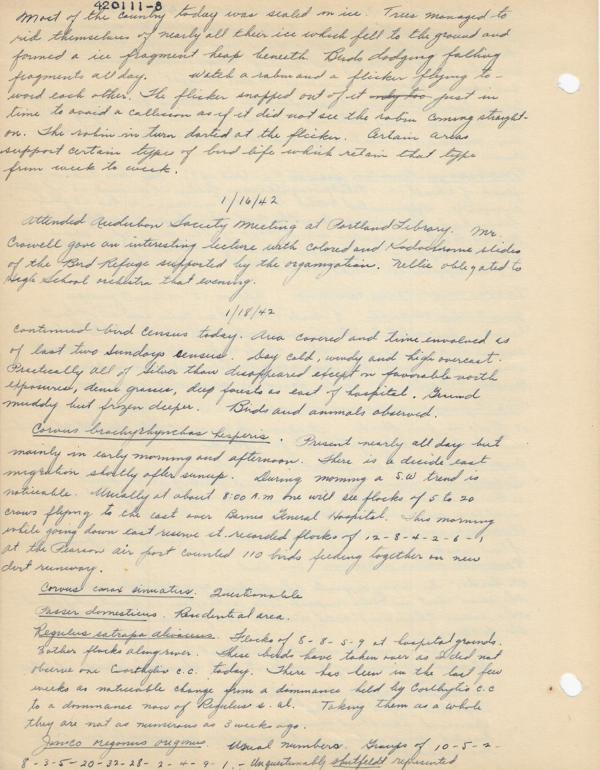 420111-8
Most of the country today was sealed in ice. Trees managed to
rid themselves of nearly all their ice which fell to the ground and
formed a ice fragment heap beneath. Birds dodging falling
fragments all day. Watch a robin and a flicker flying to-
ward each other. The flicker snapped out of it only too just in
time to avoid a collision as if it did not see the robin coming straight-
on. The robin in turn darted at the flicker. Certain areas
support certain types of bird life which retain that type
from week to week.
1/16/42
Attended Audubon Society Meeting at Portland Library. Mr.
Crowell gave an interesting lecture with colored and Kodachrome slides
of the Bird Refuge supported by the organization. Nellie obligated to
High School orchestra that evening.
1/18/42
Continued bird census today. Area covered and time involved as
of last two Sundays census. Day cold, windy and high overcast.
Practically all of silver thaw disappeared except in favorable north
exposures, dense grasses, deep forests as east of hospital. Ground
muddy but frozen deeper. Birds and animals observed.
Corvus brachyrhynchos hesperis. Present nearly all day but
mainly in early morning and afternoon. There is a decide east
migration shortly after sunup. During morning a S.W trend is
noticable. Usually at about 8:00 A.M one will see flocks of 5 to 20
crows flying to the east over Barnes General Hospital. This morning
while going down east reserve st. recorded flocks of 12-8-4-2-6-1
At the Pearson air port counted 110 birds feeding together on new
dirt runway.
Corvus corax sinuatus. Questionable
Passer domesticus. Residential area.
Regulus satrapa olivaceus. Flocks of 8-8-5-9 at hospital grounds.
3 other flocks along river. These birds have taken over as I did not
observe one Corthylio c.c. today. There has been in the last few
weeks as noticable change from a dominance held by Corthylio c.c
to a dominance now of Regulus s. ol. Taking them as a whole
they are not as numerous as 3 weeks ago.
Junco oreganus oreganus. Usual numbers. Groups of 10-5-2-
8-3-5-20-32-28-2-4-9-1. - Unquestionably shufeldti represented